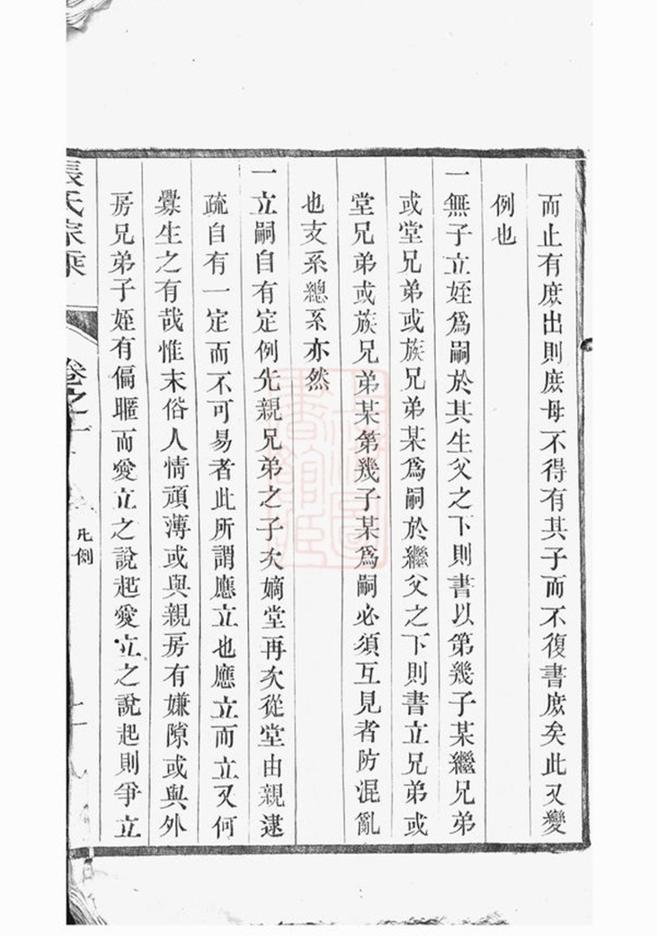 而止有庶出則庶母不得有其子而不復書庶矣此又變
例也
一無子立姪爲嗣於其生父之下則書以第幾子某繼兄弟
或堂兄弟或族兄弟某爲嗣於繼父之下則書立兄弟或
堂兄弟或族兄弟某第幾子某爲嗣必須互見者防混亂
也支系總系亦然
一立嗣自有定例先親兄弟之子次嫡堂再次從堂由親逮
疏自有一定而不可易者此所謂應立也應立而立又何
釁生之有哉惟末俗人情頑薄或與親房有嫌隙或與外
房兄弟子姪有偏暱而愛立之說起愛立之說起則爭立
張氏宗乘
卷之一
凡例